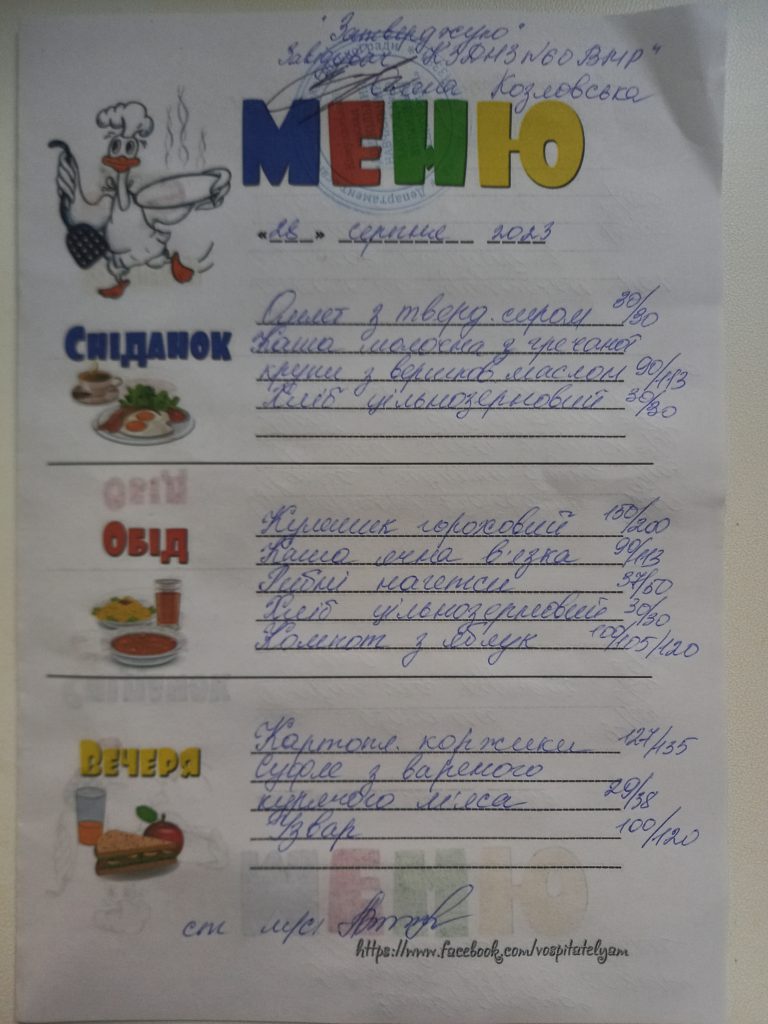 "Затверджую"
Завідувач КЗДНЗ №60 ВМР"
Козловська
МЕНЮ
«28» серпня 2023
СНІДАНОК
Омлет з тверд. сиром 30/30
Каша молочна з гречаної
крупи з вершков маслом 90/113
Хліб цільнозерновий 30/30
ОБІД
Кулешик гороховий 150/200
Каша ячна в'язка 90/113
Рибні нагетси 37/50
Хліб цільнозерновий 30/30
Компот з яблук 100/105/120
ВЕЧЕРЯ
Картопл. коржики 127/135
Суфле з вареного
курячого м'яса 29/38
Узвар 100/120
ст м/с
https://www.facebook.com/vospitatelyam